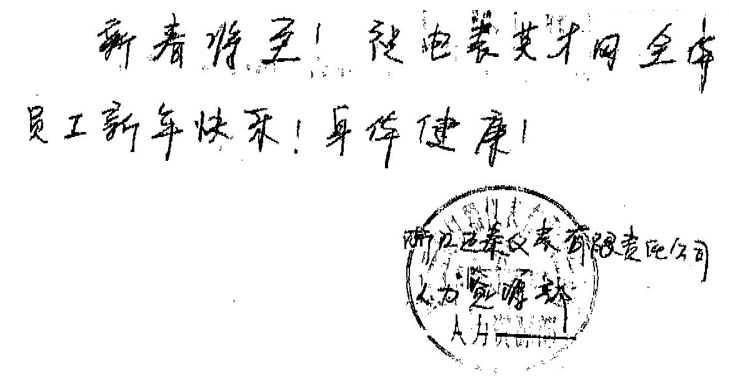 新春将至！祝电表英才网全体
员工新年快乐！身体健康！
浙江迅泰仪表有限责任公司
人力资源部
人力资源部